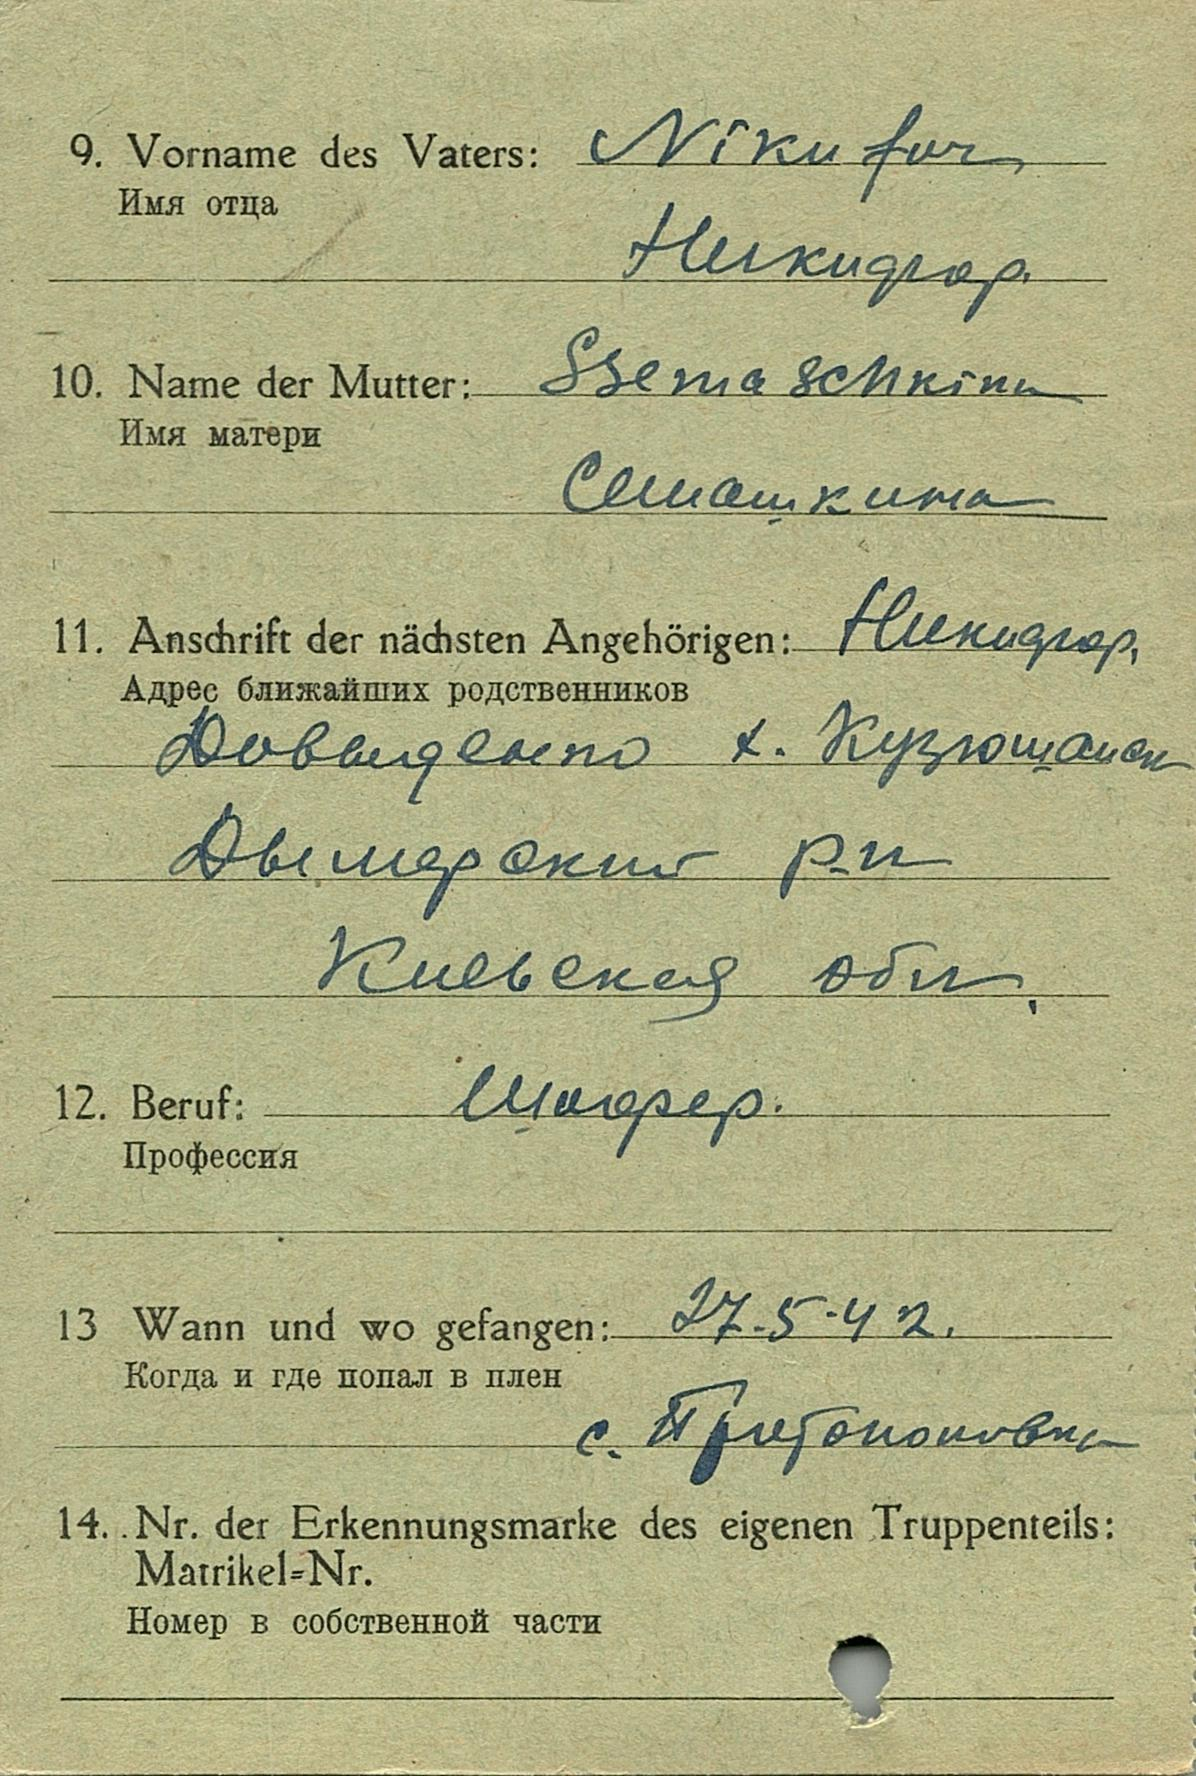 9. Vorname des Vaters: Nikufor
Имя отца
Никифор.
10. Name der Mutter: Ssemaschkina
Имя матери
Семашкина
11. Anschrift der nächsten Angehörigen: Никифор.
Адрес ближайших родственников
х.
Дымерский р-н
Киевская обл.
12. Beruf: Шофер.
Профессия
13 Wann und wo gefangen: 27.5.42.
Когда и где попал в плен
с. Протопоповка
14. Nr. der Erkennungsmarke des eigenen Truppenteils:
Matrikel=Nr.
Номер в собственной части